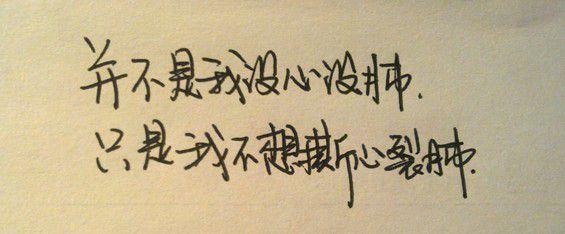 并不是我没心没肺.
只是我不想撕心裂肺.